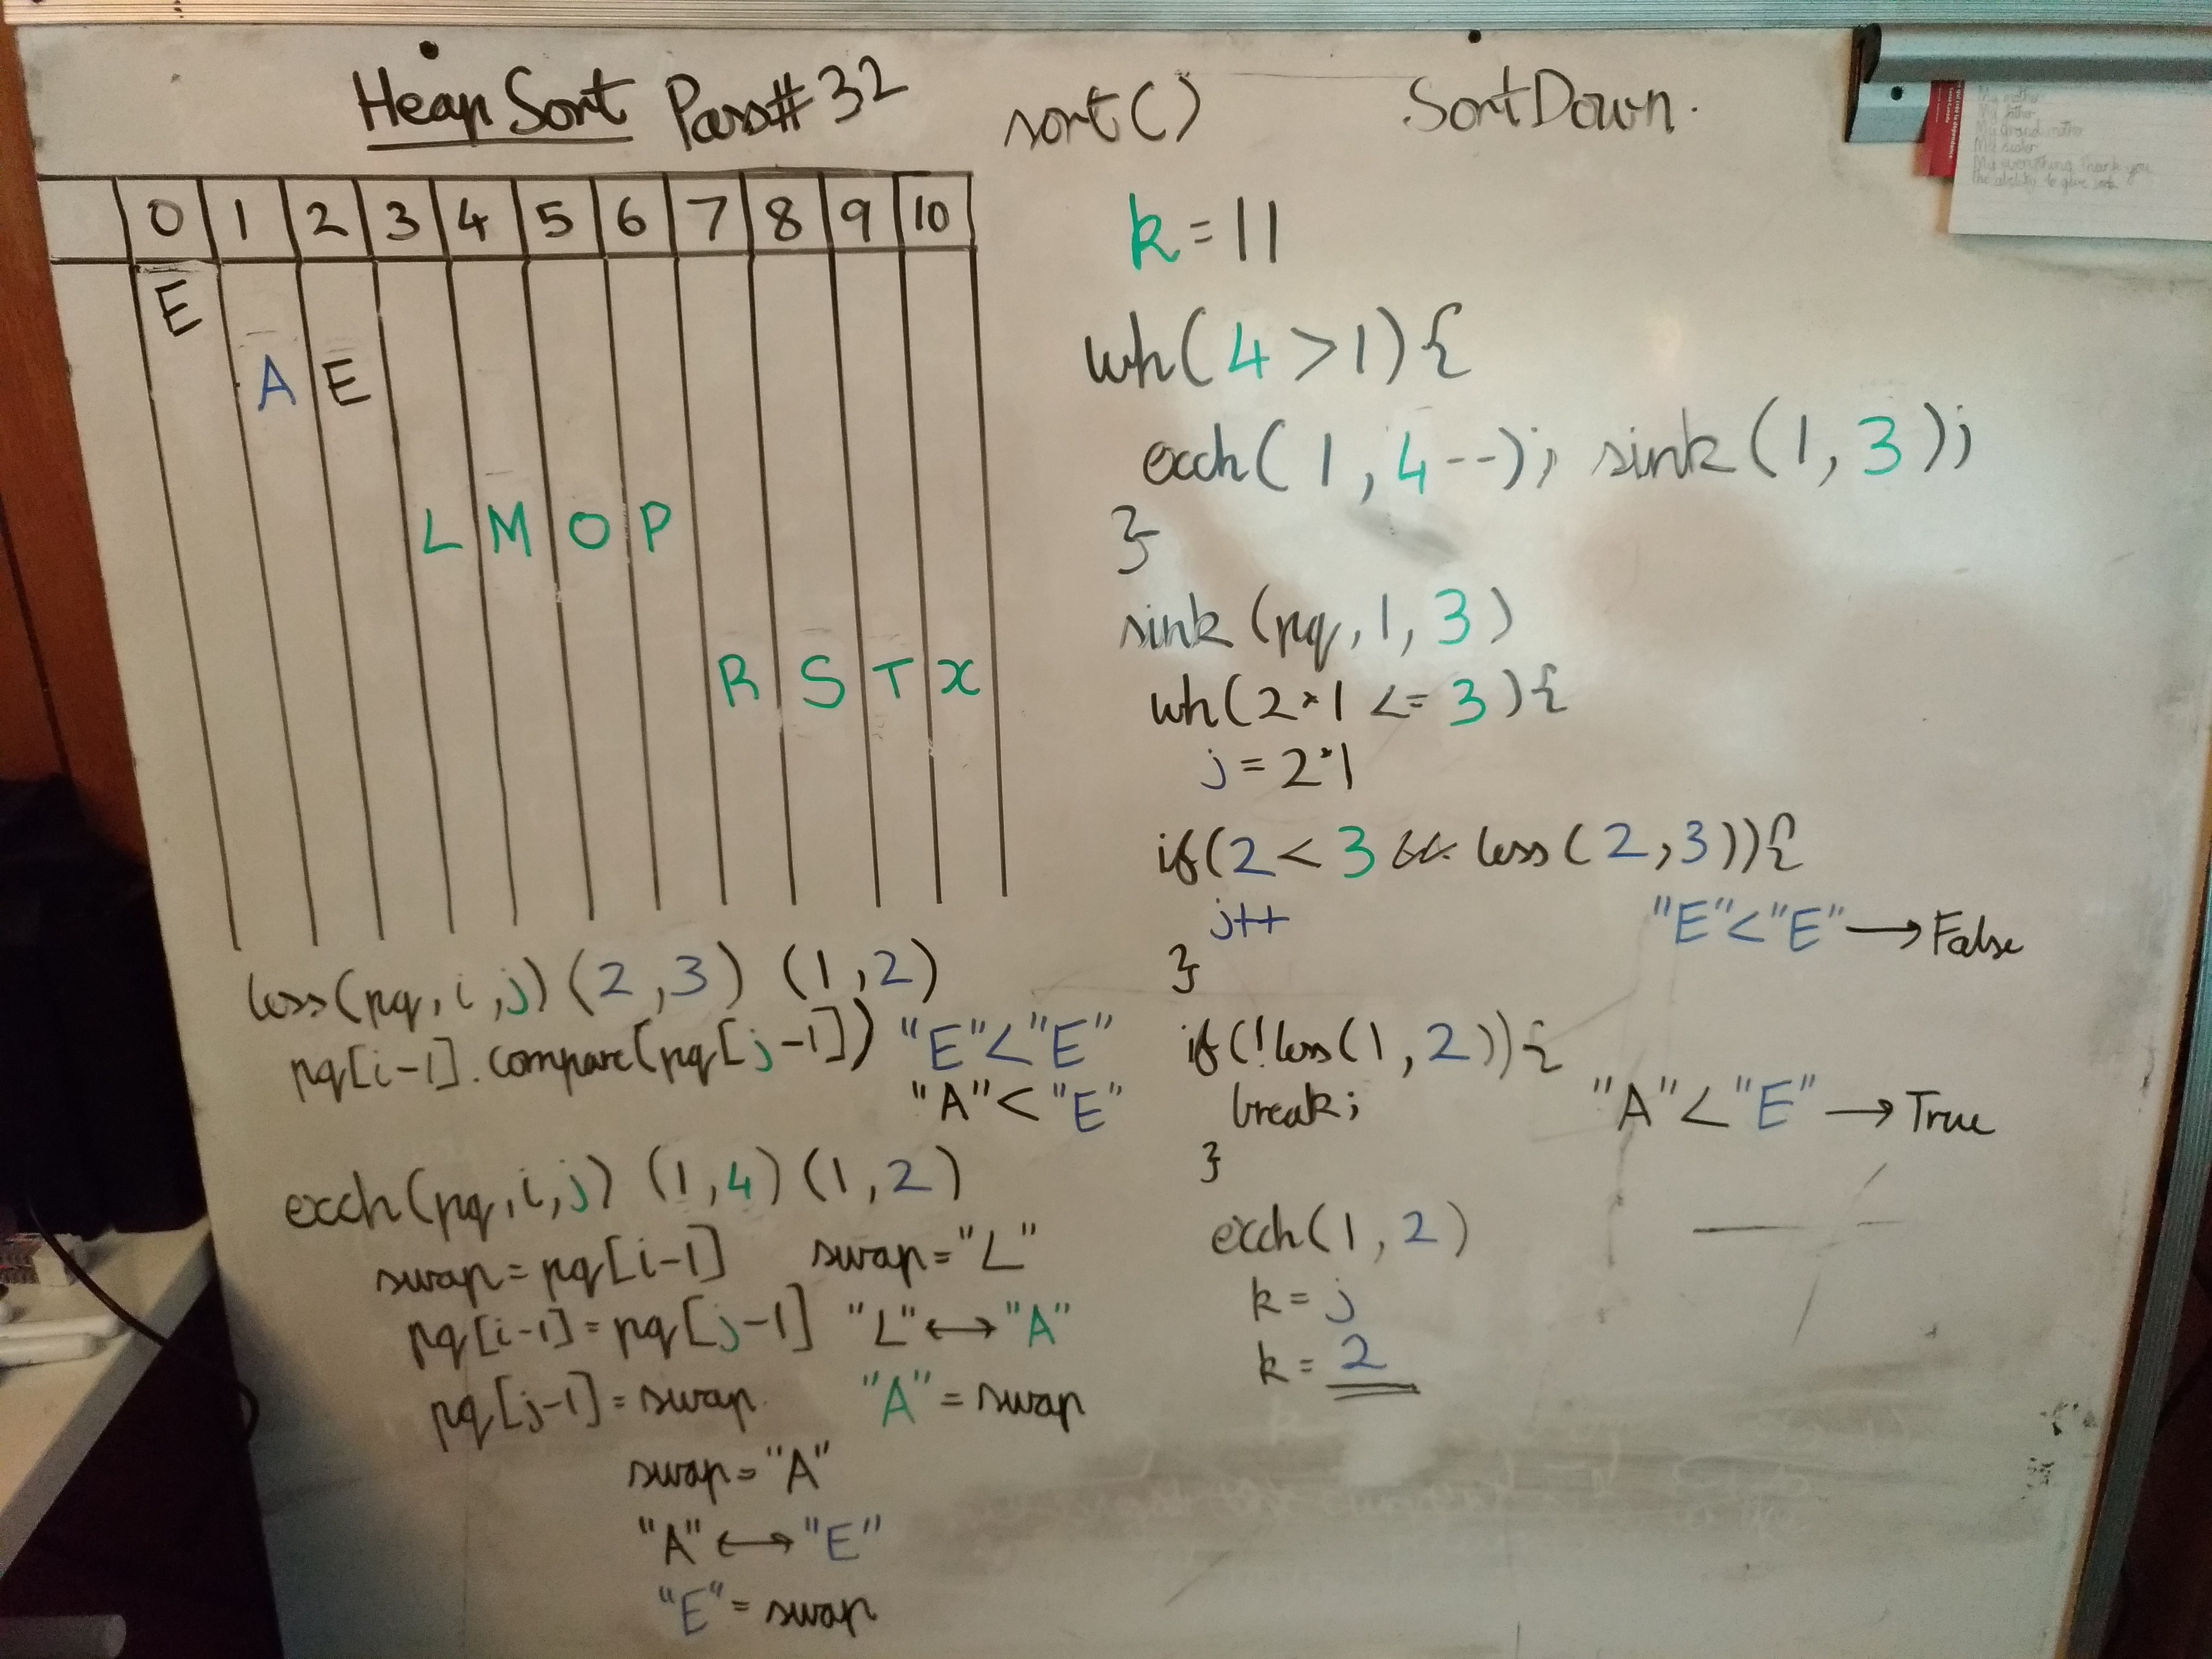 Heap Sort Pass# 32 sort() SortDown.
0 1 2 3 4 5 6 7 8 9 10
E
A E
L M O P
R S T X
less(pq, i, j) (2,3) (1,2)
pq[i-1].compare(pq[j-1]) "E"<"E"
"A"<"E"
exch(pq, i, j) (1,4) (1,2)
swap=pq[i-1] swap="L"
pq[i-1]=pq[j-1] "L"↔"A"
pq[j-1]=swap. "A"=swap
swap="A"
"A"↔"E"
"E"=swap
k=11
wh(4>1){
exch(1,4--); sink(1,3);
}
sink(pq,1,3)
wh(2*1<=3){
j=2*1
if(2<3 && less(2,3)){
j++ "E"<"E"→False
}
if(!less(1,2)){
break; "A"<"E"→True
}
exch(1,2)
k=j
k=2
My mother
My father
My Grandmother
My sister
My everything Thank you
the ability to give